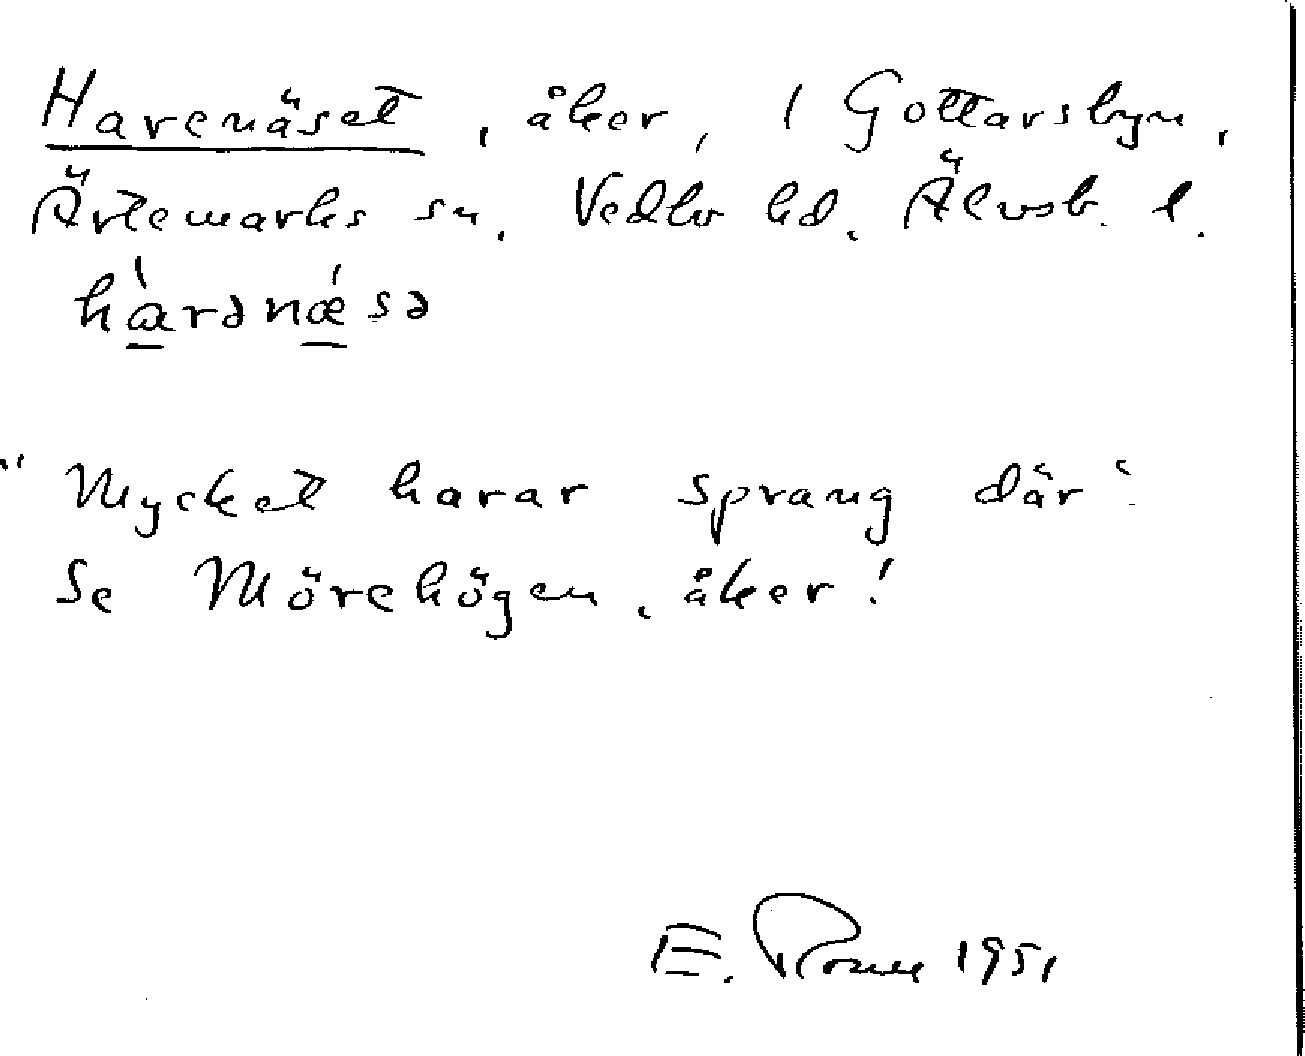 Harenäset, åker, i Gottarsbyn,
Ärtemarks sn. Vedbo hd. Älvsb. l.
hàrənǽsə
"Mycket harar sprang där"
Se Mörehögen, åker!
E. 1951